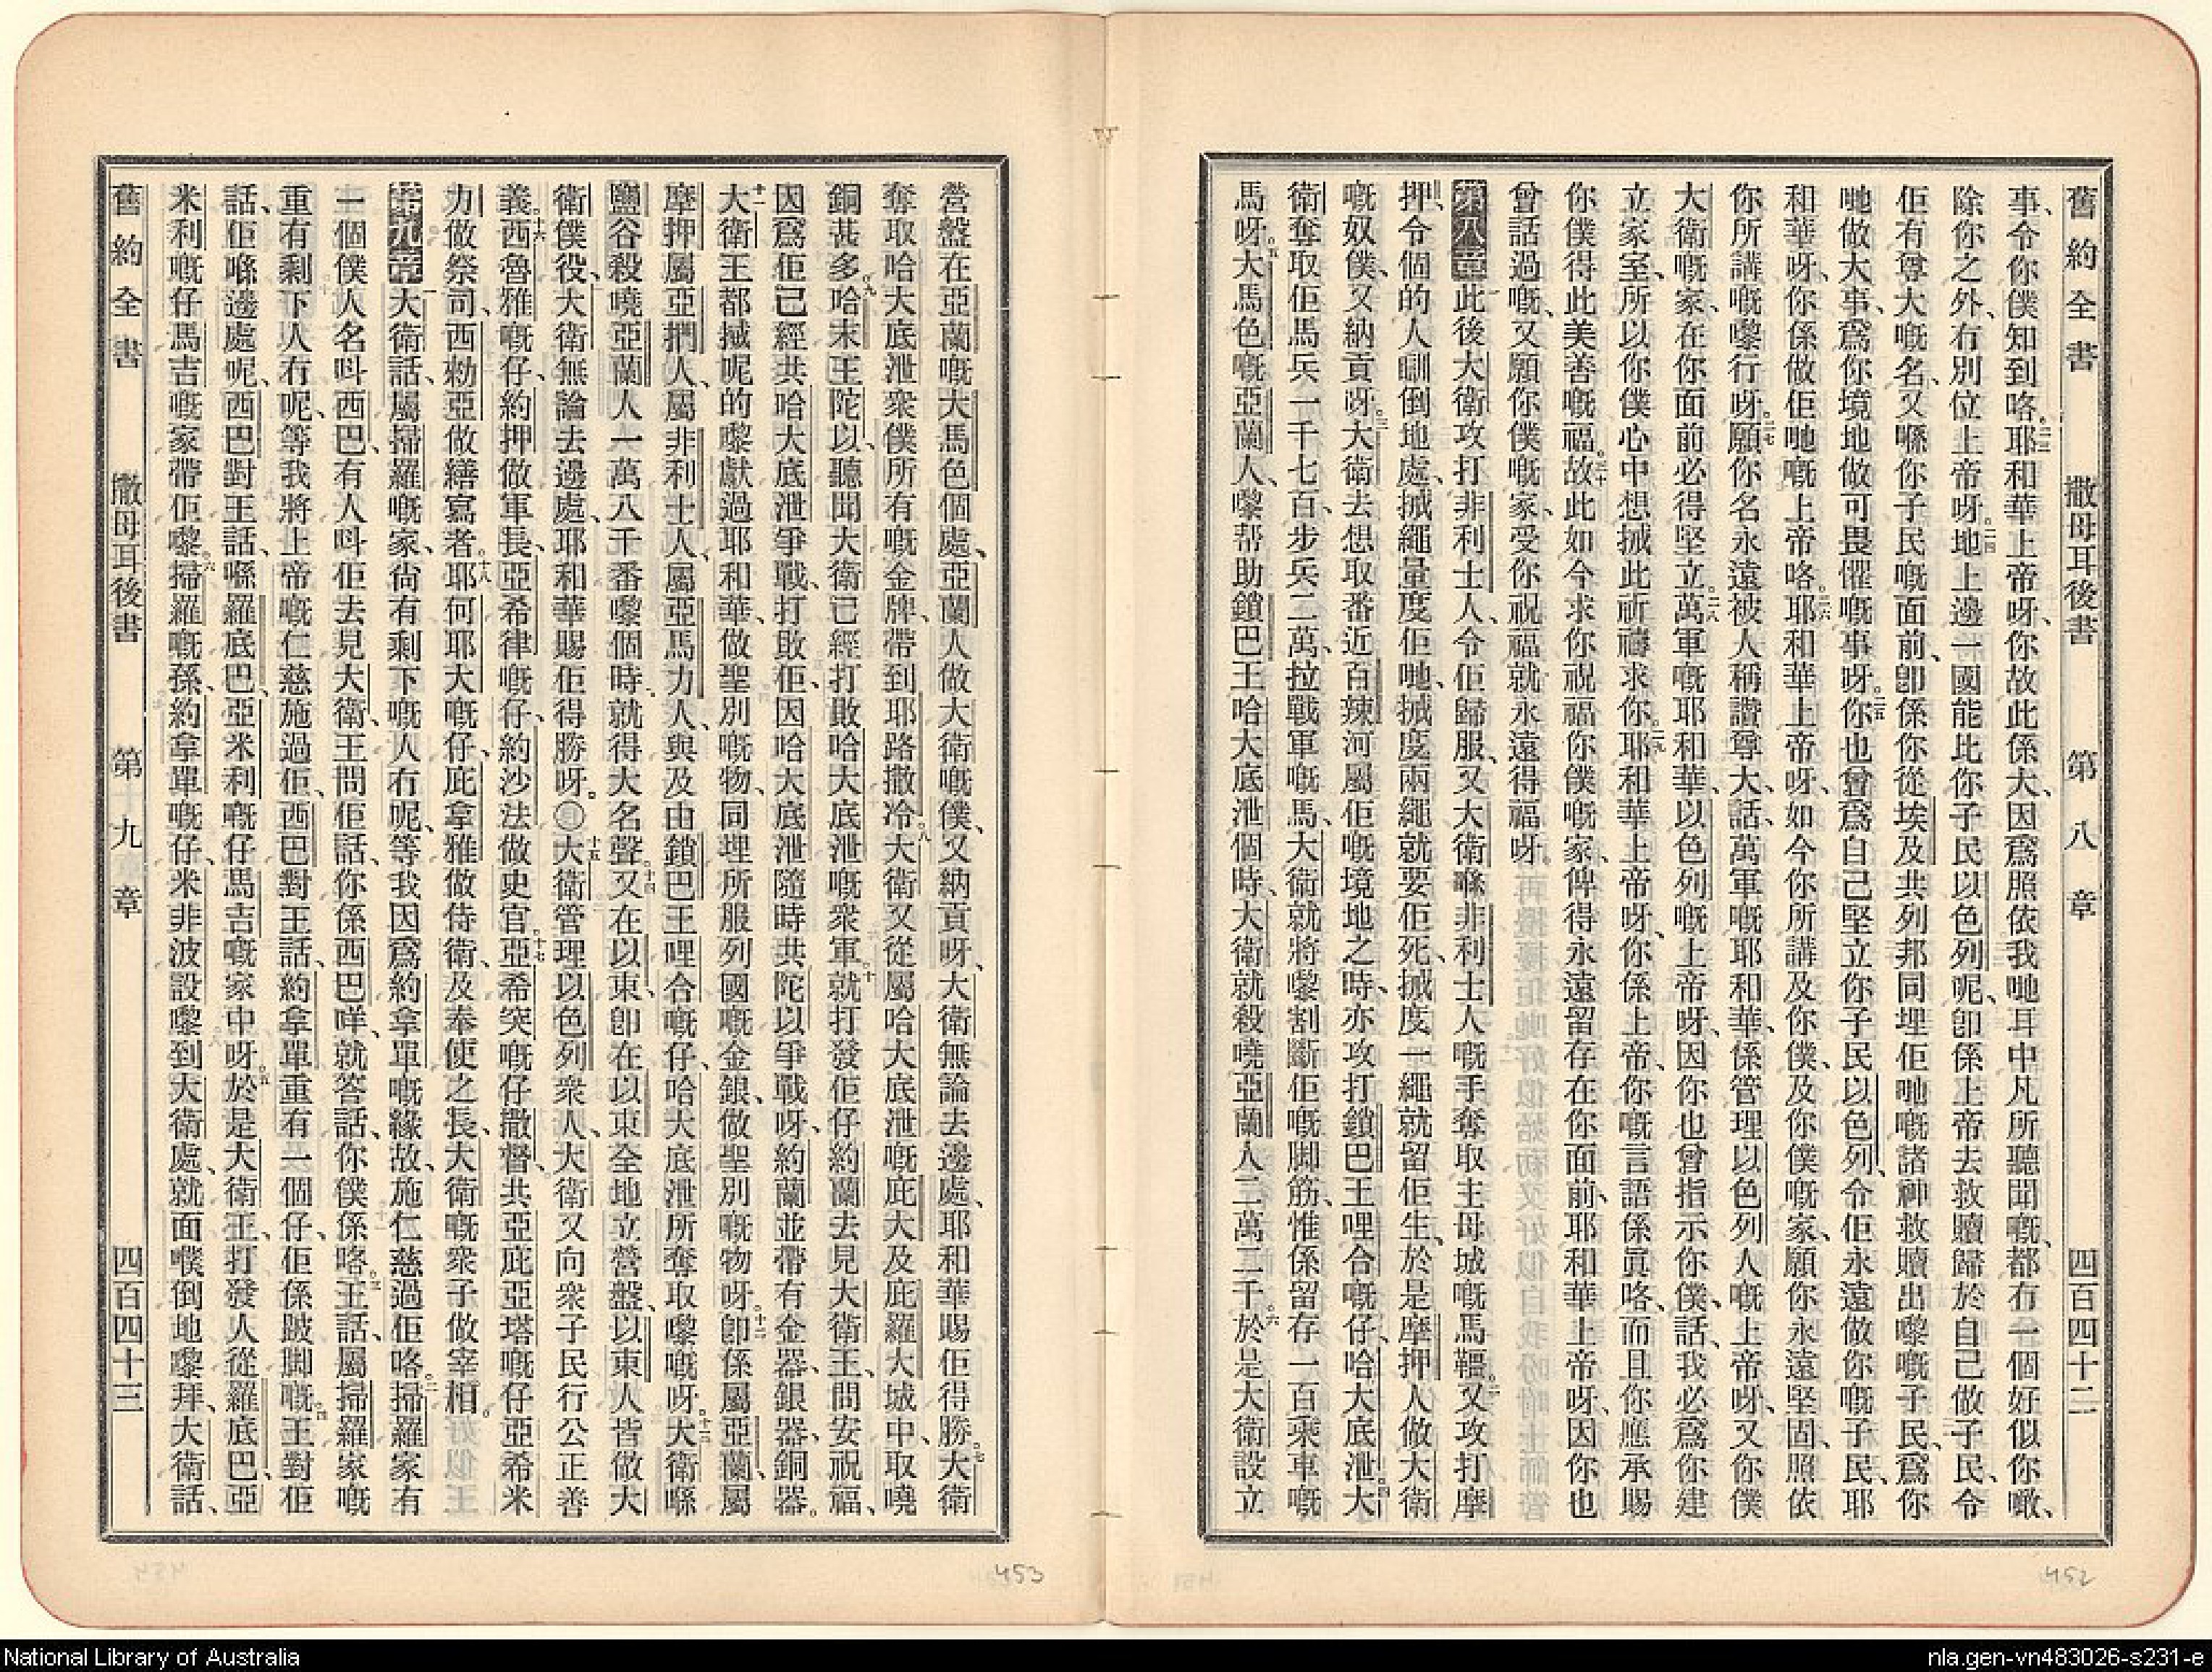 舊約全書 撒母耳後書 第八章 四百四十二
事、令你僕知到咯。二三耶和華上帝呀、你故此係大、因爲照依我哋耳中凡所聽聞嘅、都冇一個好似你噉、
除你之外、冇別位上帝呀。二四地上邊一國能比你子民以色列呢、卽係上帝去救贖歸於自己做子民、令
佢有尊大嘅名、又喺你子民嘅面前、卽係你從埃及共列邦同埋佢哋嘅諸神救贖出嚟嘅子民、爲你
哋做大事、爲你境地做可畏懼嘅事呀。二五你也曾爲自己堅立你子民以色列、令佢永遠做你嘅子民、耶
和華呀、你係做佢哋嘅上帝咯。二六耶和華上帝呀、如今你所講及你僕、及你僕嘅家、願你永遠堅固、照依
你所講嘅嚟行呀。二七願你名永遠被人稱讚尊大、話、萬軍嘅耶和華、係管理以色列人嘅上帝呀、又你僕
大衛嘅家、在你面前必得堅立。二八萬軍嘅耶和華、以色列嘅上帝呀、因你也曾指示你僕、話、我必爲你建
立家室、所以你僕心中想搣此祈禱求你。二九耶和華上帝呀、你係上帝、你嘅言語係眞咯、而且你應承賜
你僕得此美善嘅福。三十故此如今求你祝福你僕嘅家、俾得永遠留存在你面前、耶和華上帝呀、因你也
曾話過嘅、又願你僕嘅家、受你祝福、就永遠得福呀。
第八章 一此後大衛攻打非利士人、令佢歸服、又大衛喺非利士人嘅手奪取主母城嘅馬韁。二又攻打摩
押、令個的人瞓倒地處、搣繩量度佢哋、搣度兩繩就要佢死、搣度一繩就留佢生、於是摩押人做大衛
嘅奴僕、又納貢呀。三大衛去想取番近百辣河屬佢嘅境地之時、亦攻打鎖巴王哩合嘅仔、哈大底泄。四大
衛奪取佢馬兵一千七百、步兵二萬、拉戰軍嘅馬、大衛就將嚟割斷佢嘅脚筋、惟係留存一百乘車嘅
馬呀。五大馬色嘅亞蘭人、嚟帮助鎖巴王哈大底泄個時、大衛就殺嘵亞蘭人二萬二千。六於是大衛設立
舊約全書 撒母耳後書 第九章 四百四十三
營盤在亞蘭嘅大馬色個處、亞蘭人做大衛嘅僕、又納貢呀、大衛無論去邊處、耶和華賜佢得勝。七大衛
奪取哈大底泄衆僕所有嘅金牌、帶到耶路撒冷。八大衛又從屬哈大底泄嘅庇大及庇羅大城中、取嘵
銅甚多。九哈末王陀以、聽聞大衛已經打敗哈大底泄嘅衆軍。十就打發佢仔約蘭去見大衛王、問安祝福、
因爲佢已經共哈大底泄爭戰、打敗佢、因哈大底泄隨時共陀以爭戰呀、約蘭並帶有金器、銀器、銅器。
十一大衛王都搣呢的嚟獻過耶和華、做聖別嘅物、同埋所服列國嘅金銀、做聖別嘅物呀。十二卽係屬亞蘭、屬
摩押、屬亞捫人、屬非利士人、屬亞馬力人、與及由鎖巴王哩合嘅仔、哈大底泄所奪取嚟嘅呀。十三大衛喺
鹽谷殺嘵亞蘭人一萬八千番嚟個時、就得大名聲。十四又在以東、卽在以東全地立營盤、以東人皆做大
衛僕役、大衛無論去邊處、耶和華賜佢得勝呀。〇十五大衛管理以色列衆人、大衛又向衆子民行公正善
義。十六西魯雅嘅仔、約押做軍長、亞希律嘅仔、約沙法做史官。十七亞希突嘅仔撒督、共亞庇亞塔嘅仔亞希米
力做祭司、西勑亞做繕寫者。十八耶何耶大嘅仔、庇拿雅做侍衛、及奉使之長、大衛嘅衆子做宰相。
第九章 一大衛話、屬掃羅嘅家、尙有剩下嘅人冇呢、等我因爲約拿單嘅緣故、施仁慈過佢咯。二掃羅家有
一個僕人名呌西巴、有人呌佢去見大衛、王問佢話、你係西巴咩、就答話、你僕係咯。三王話、屬掃羅家嘅
重有剩下人冇呢、等我將上帝嘅仁慈施過佢、西巴對王話、約拿單重有一個仔、佢係跛脚嘅。四王對佢
話、佢喺邊處呢、西巴對王話、喺羅底巴、亞米利嘅仔馬吉嘅家中呀。五於是大衛王、打發人從羅底巴、亞
米利嘅仔馬吉嘅家帶佢嚟。六掃羅嘅孫、約拿單嘅仔、米非波設嚟到大衛處、就面噗倒地嚟拜、大衛話、
453
452
National Library of Australia
nla.gen-vn483026-s231-e